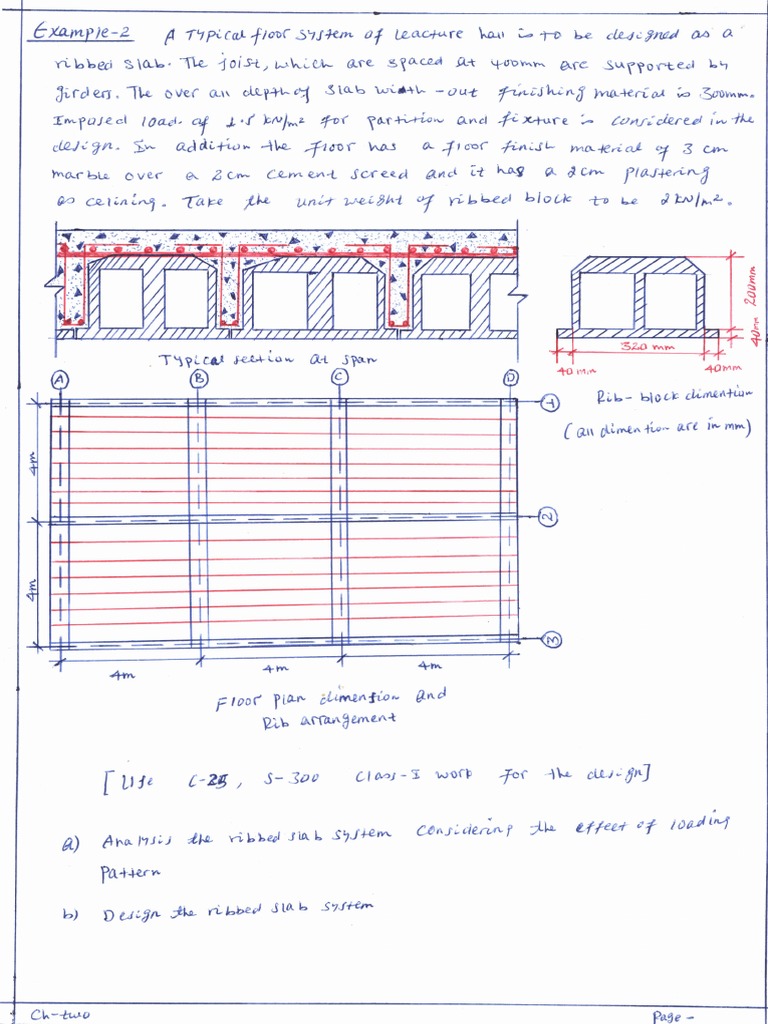 Example-2 A Typical floor system of leacture hall is to be designed as a
ribbed slab. The joist, which are spaced at 400mm are supported by
girders. The over all depth of slab with-out finishing material is 300mm.
Imposed load of 1.5 kN/m² for partition and fixture is considered in the
design. In addition the floor has a floor finish material of 3 cm
marble over a 2cm cement screed and it has a 2cm plastering
as celining. Take the unit weight of ribbed block to be 2kN/m².
200mm
40mm
320 mm
40mm
40mm
Typical section at span
Rib-block dimention
(all dimention are in mm)
A B C D
1
4m
2
4m
3
4m 4m 4m
Floor plan dimention and
Rib arrangement
[Use C-25, S-300 Class-I work for the design]
a) Analysis the ribbed slab system considering the effect of loading
pattern
b) Design the ribbed slab system
Ch-two Page -